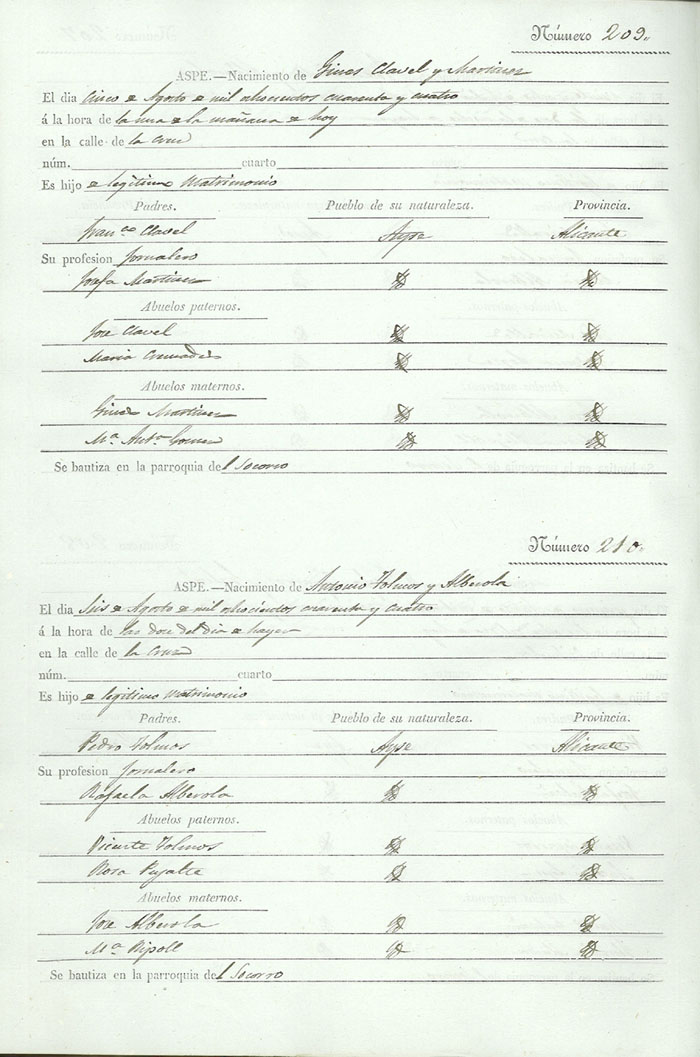 Número 209.
ASPE.—Nacimiento de Gines Clavel y Martinez
El dia Cinco de Agosto de mil ochocientos cuarenta y cuatro
á la hora de la una de la mañana de hoy
en la calle de la Cruz
núm. cuarto
Es hijo de legitimo Matrimonio
Padres. Pueblo de su naturaleza. Provincia.
Franco Clavel Aspe Alicante
Su profesion Jornalero
Josefa Martinez
Abuelos paternos.
Jose Clavel
Maria Cremades
Abuelos maternos.
Gines Martinez
Ma. Anta
Se bautiza en la parroquia del Socorro
Número 210.
ASPE.—Nacimiento de Antonio Tolmos y Alberola
El dia Seis de Agosto de mil ochocientos cuarenta y cuatro
á la hora de las doce del dia de hayer
en la calle de la Cruz
núm. cuarto
Es hijo de legitimo Matrimonio
Padres. Pueblo de su naturaleza. Provincia.
Pedro Tolmos Aspe Alicante
Su profesion Jornalero
Rafaela Alberola
Abuelos paternos.
Vicente Tolmos
Rosa Pujalte
Abuelos maternos.
Jose Alberola
Ma. Ripoll
Se bautiza en la parroquia del Socorro